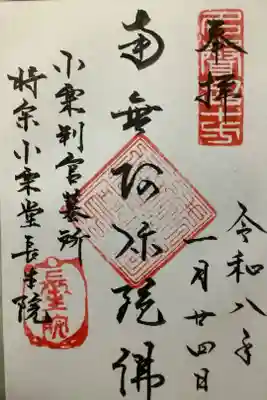 奉拝
令和八年
一月廿四日
南無阿弥陀佛
小栗判官墓所
時宗小栗堂長生院